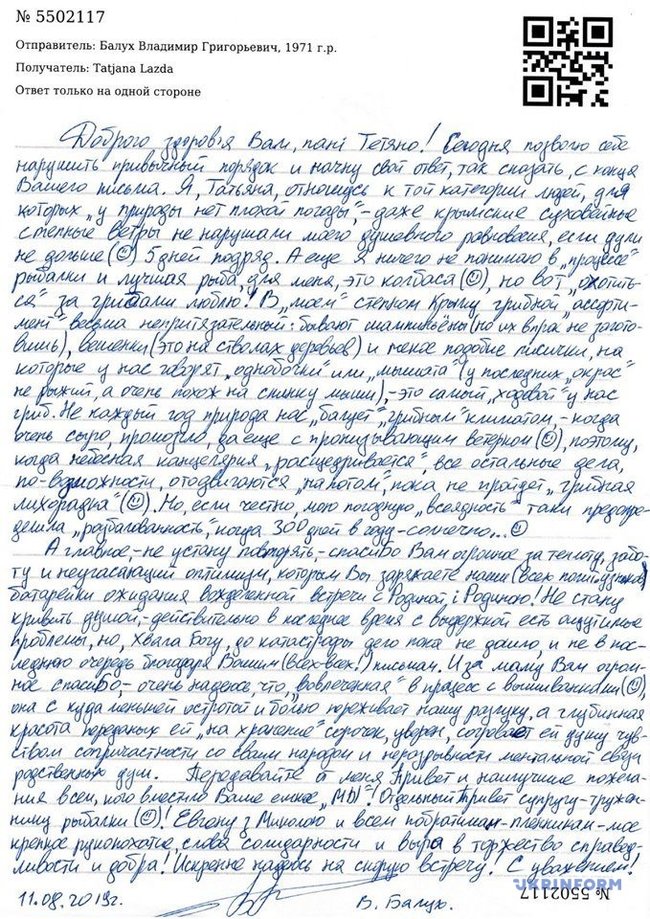 № 5502117
Отправитель: Балух Владимир Григорьевич, 1971 г.р.
Получатель: Tatjana Lazda
Ответ только на одной стороне
Доброго здоров'я Вам, пані Тетяно! Сегодня позволю себе
нарушить привычный порядок и начну свой ответ, так сказать, с конца
Вашего письма. Я, Татьяна, отношусь к той категории людей, для
которых „у природы нет плохой погоды", – даже крымские суховейные
степные ветры не нарушали моего душевного равновесия, если дули
не дольше (☺) 5 дней подряд. А еще я ничего не понимаю в „процессе"
рыбалки и лучшая рыба, для меня, это колбаса (☺), но вот „охотить-
ся" за грибами люблю! В „моем" степном Крыму грибной „ассорти-
мент" весьма непритязательный: бывают шампиньёны (но их впрок не загото-
вишь), вешенки (это на стволах деревьев) и некое подобие лисички, на
которые у нас говорят „однобочки" или „мышата" (у последних „окрас"
не рыжий, а очень похож на спинку мыши), – это самый „ходовой" у нас
гриб. Не каждый год природа нас „балует" „грибным" климатом, – когда
очень сыро, промозгло, да еще с пронизывающим ветерком (☺), поэтому,
когда небесная канцелярия „расщедривается", все остальные дела,
по-возможности, отодвигаются „на потом", пока не пройдет „грибная
лихорадка" (☺). Но, если честно, мою погодную „всеядность" таки предопре-
делила „разбалованность", когда 300 дней в году – солнечно... ☺
А главное – не устану повторять, – спасибо Вам огромное за теплоту, забо-
ту и неугасающий оптимизм, которым Вы заряжаете наши (всех
батарейки ожидания вожделенной встречи с Родиной, і Родиною! Не стану
кривить душой, – действительно в последнее время с выдержкой есть ощутимые
проблемы, но, Хвала Богу, до катастрофы дело пока не дошло, и не в пос-
леднюю очередь благодаря Вашим (всех-всех!) письмам. И за маму Вам огром-
ное спасибо, – очень надеюсь, что, „вовлеченная" в процесс с вышиванками (☺),
она с куда меньшей остротой и болью переживает нашу разлуку, а глубинная
красота переданых ей „на хранение" сорочек, уверен, согревает ей душу чув-
ством сопричастности со своим народом и неразрывности ментальной связи
родственных душ. Передавайте от меня Привет и наилучшие пожела-
ния всем, кого вместило Ваше емкое „МЫ"! Отдельный Привет супругу-труже-
нику рыбалки (☺)! Евгену з Миколою и всем побратимам-пленникам – мое
крепкое рукопожатие, слова солидарности и вера в торжество справед-
ливости и добра! Искренне надеюсь на скорую встречу! С уважением!
11.08.2019г. В. Балух.
№ 5502117
UKRINFORM